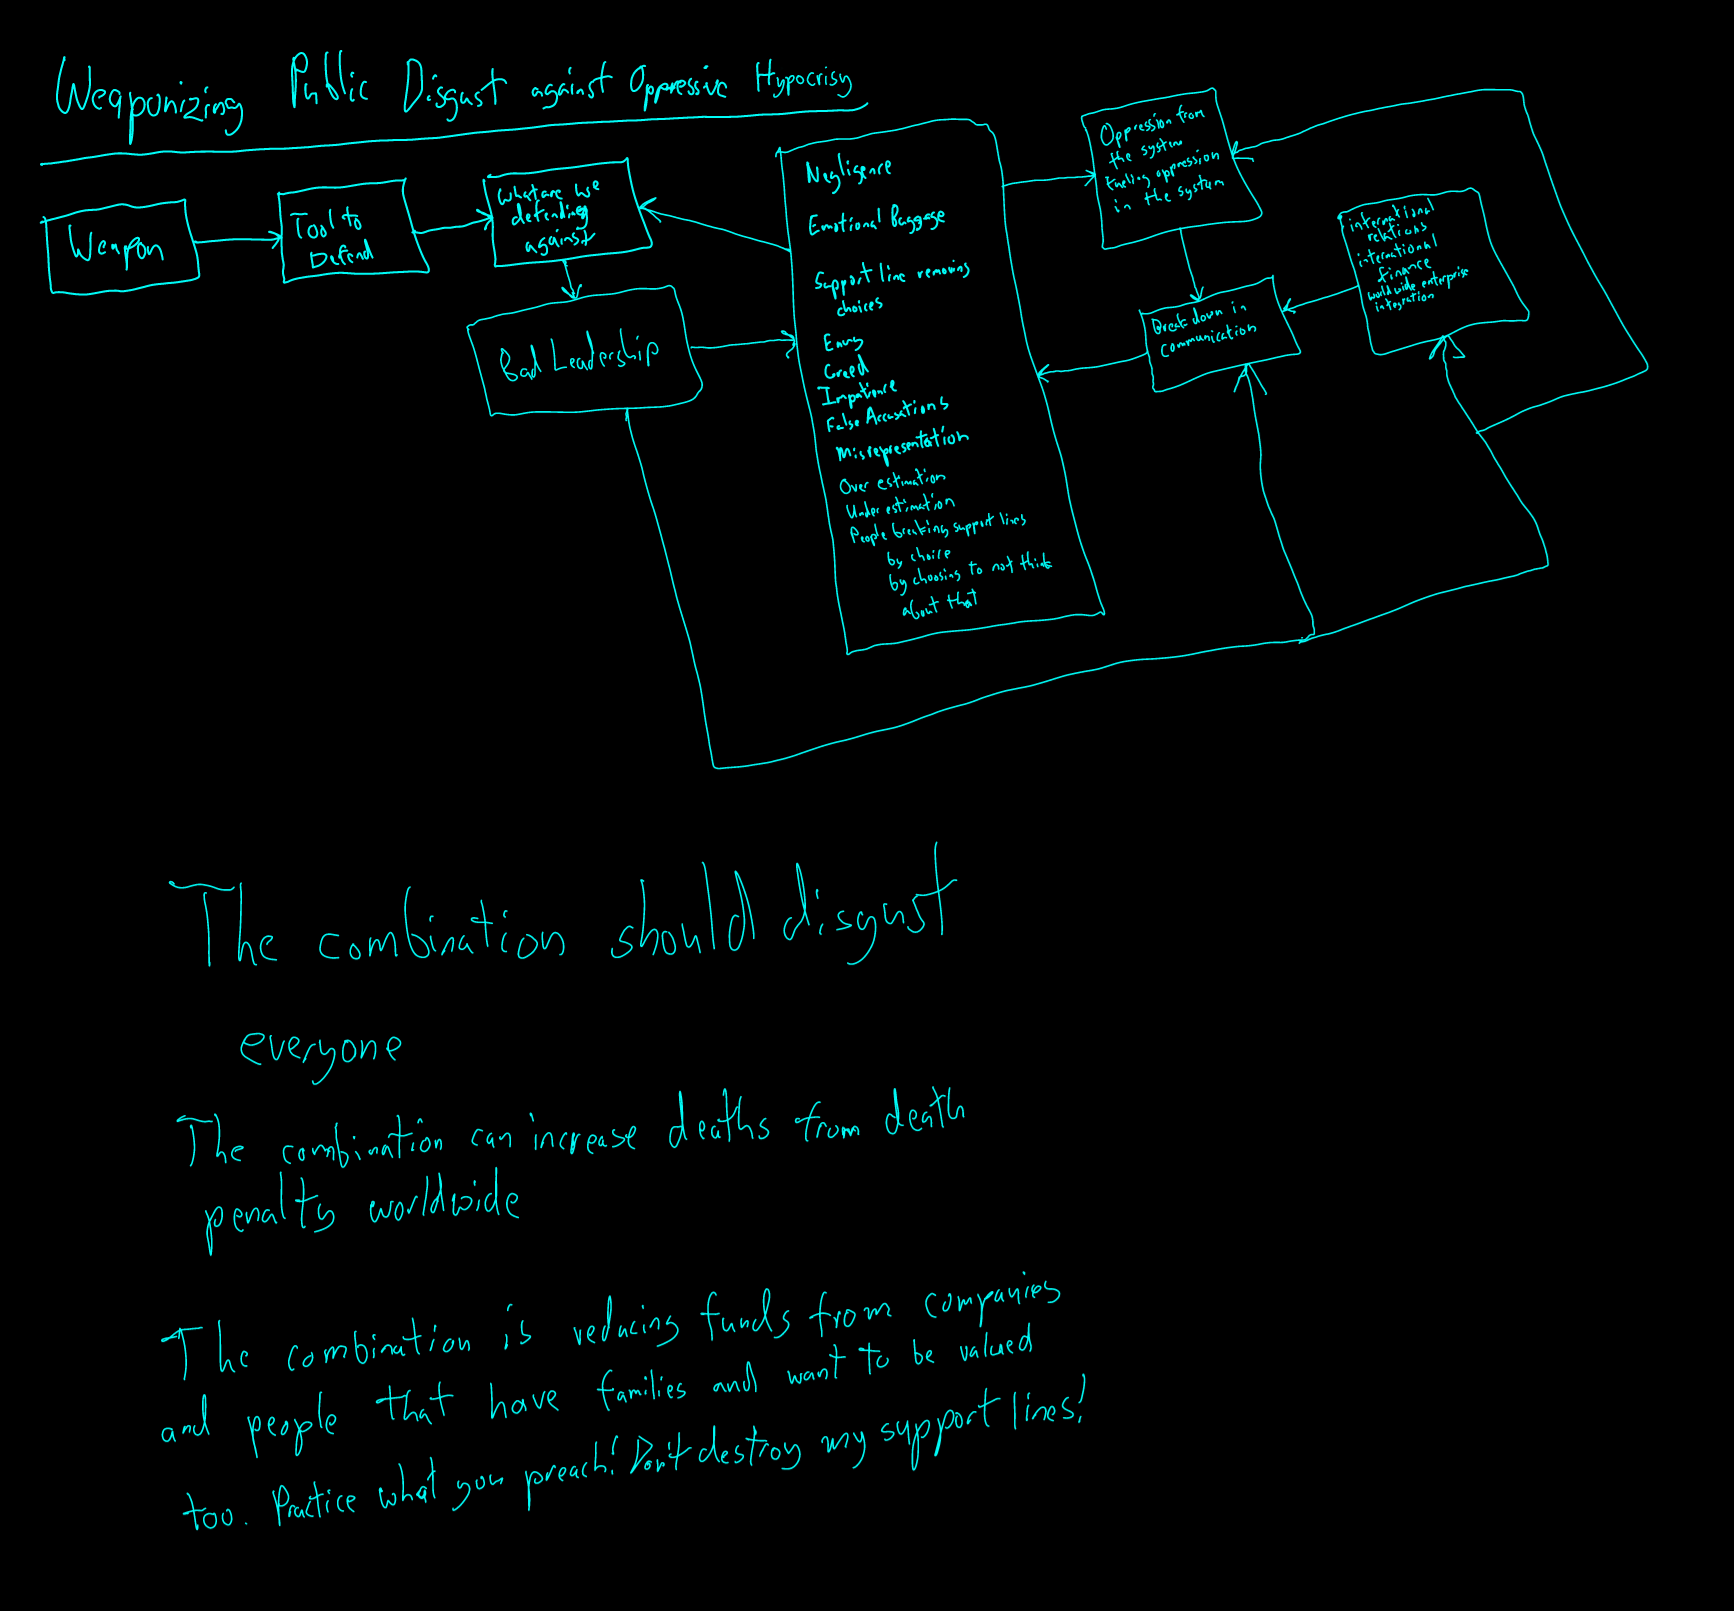 Weaponizing Public Disgust against Oppressive Hypocrisy
Weapon
Tool to
Defend
What are we
defending
against
Bad Leadership
Negligence
Emotional Baggage
Support line removing
choices
Envy
Greed
Impatience
False Accusations
Misrepresentation
Over estimation
Under estimation
People breaking support lines
by choice
by choosing to not think
about that
Oppression from
the system
fueling oppression
in the system
Breakdown in
communication
international
relations
international
finance
worldwide enterprise
integration
The combination should disgust
everyone
The combination can increase deaths from death
penalty worldwide
The combination is reducing funds from companies
and people that have families and want to be valued
too. Practice what you preach! Don't destroy my support lines!